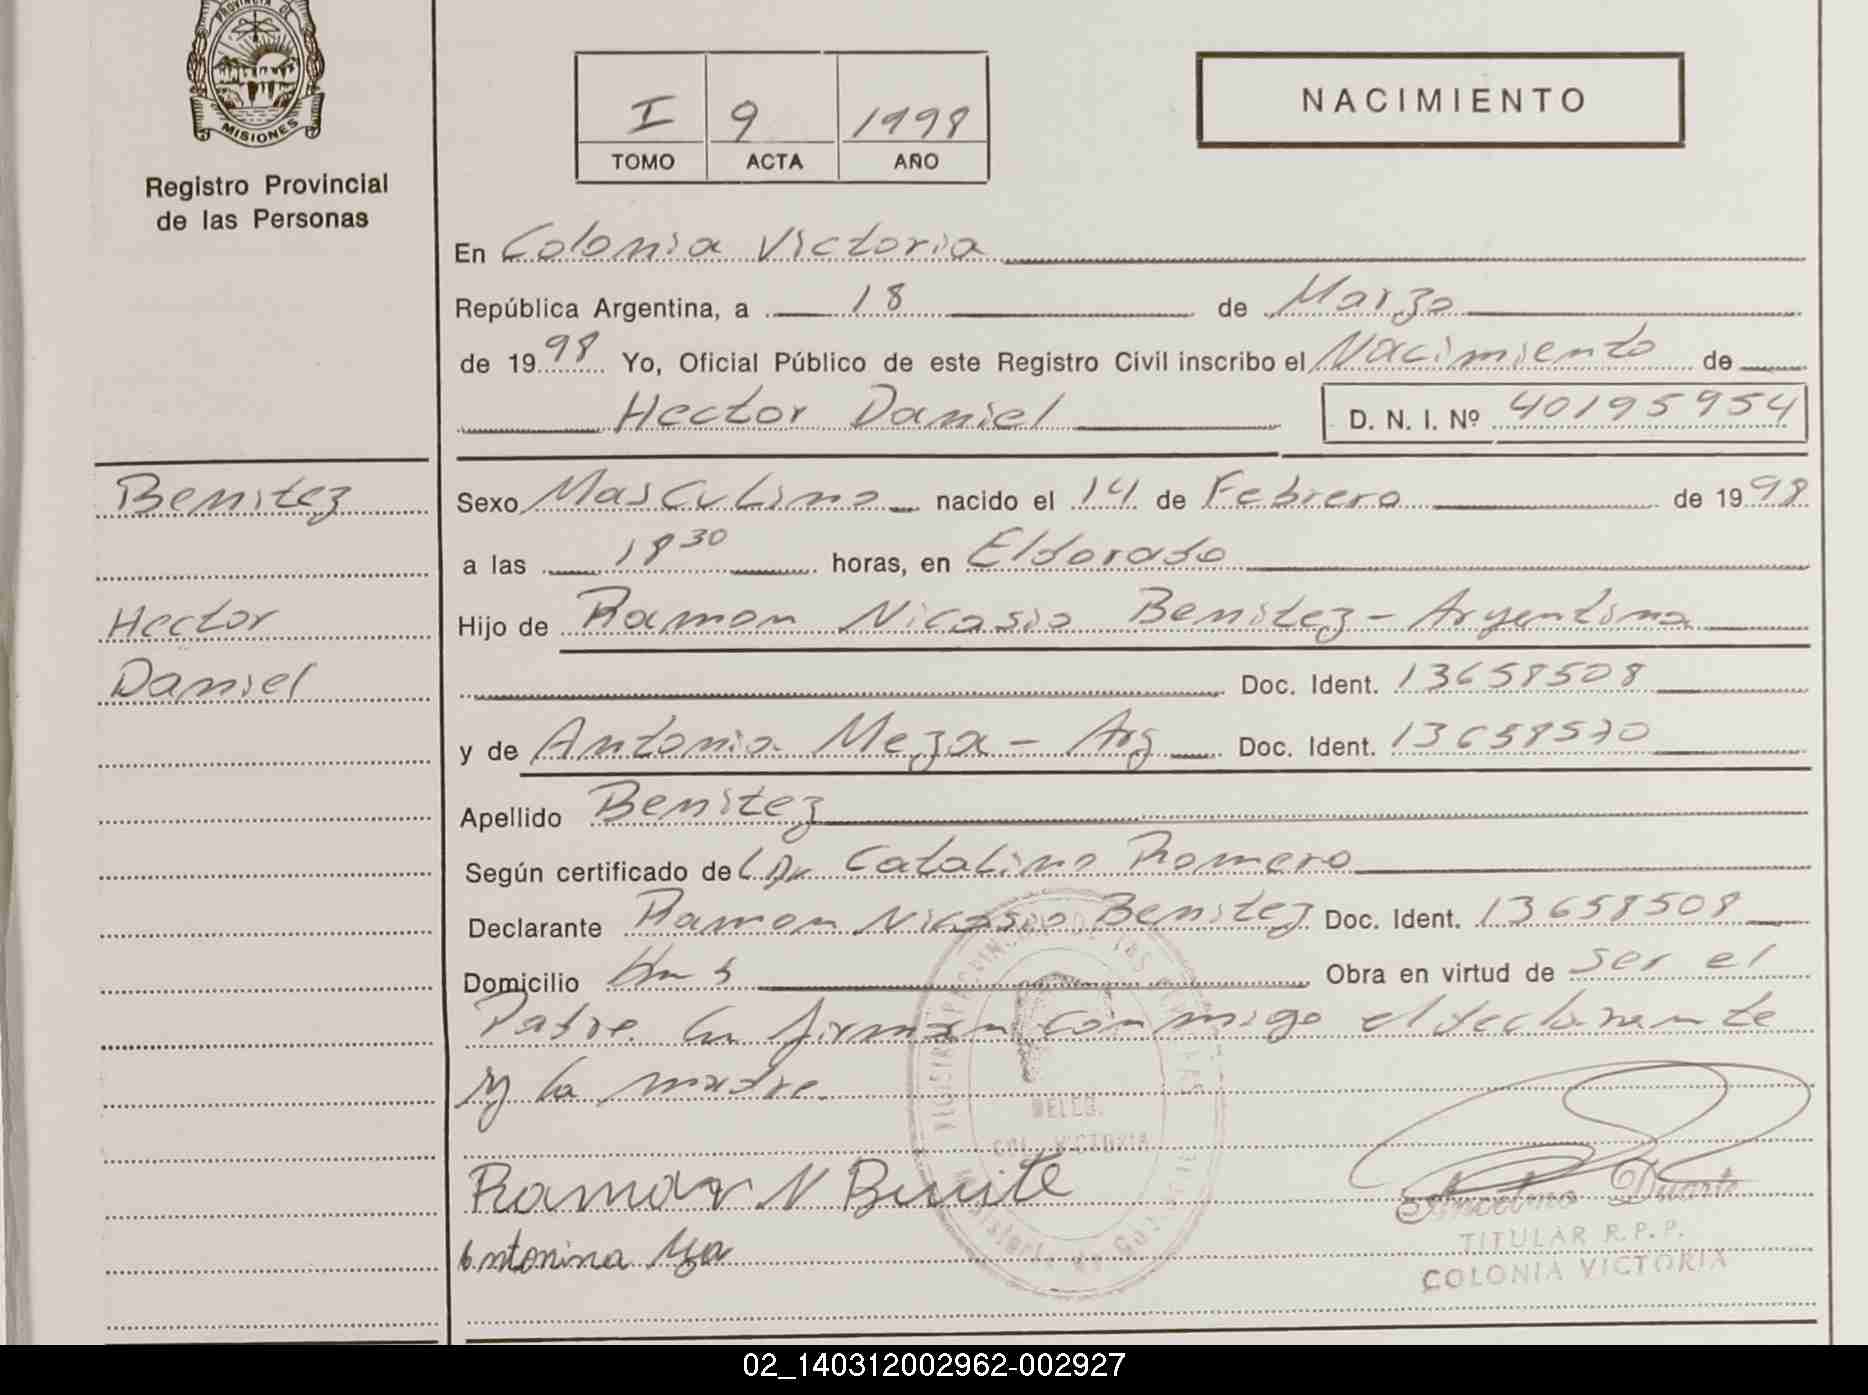 PROVINCIA DE
MISIONES
Registro Provincial
de las Personas
I 9 1998
TOMO ACTA AÑO
NACIMIENTO
En Colonia Victoria
República Argentina, a 18 de Marzo
de 1998 Yo, Oficial Público de este Registro Civil inscribo el Nacimiento de
Hector Daniel D. N. I. Nº 40195954
Benitez
Hector
Daniel
Sexo Masculino nacido el 14 de Febrero de 1998
a las 18 30 horas, en Eldorado
Hijo de Ramon Nicasio Benitez - Argentino
Doc. Ident. 13658508
y de Antonia Meza - Arg Doc. Ident. 13658570
Apellido Benitez
Según certificado de Dr Catalino Romero
Declarante Ramon Nicasio Benitez Doc. Ident. 13658508
Domicilio Km 5 Obra en virtud de ser el
Padre. firman conmigo el declarante
y la madre.
DELEG.
COL. VICTORIA
Ramon N Benite
Antonina
Ancelmo Duarte
TITULAR R.P.P.
COLONIA VICTORIA
02_140312002962-002927